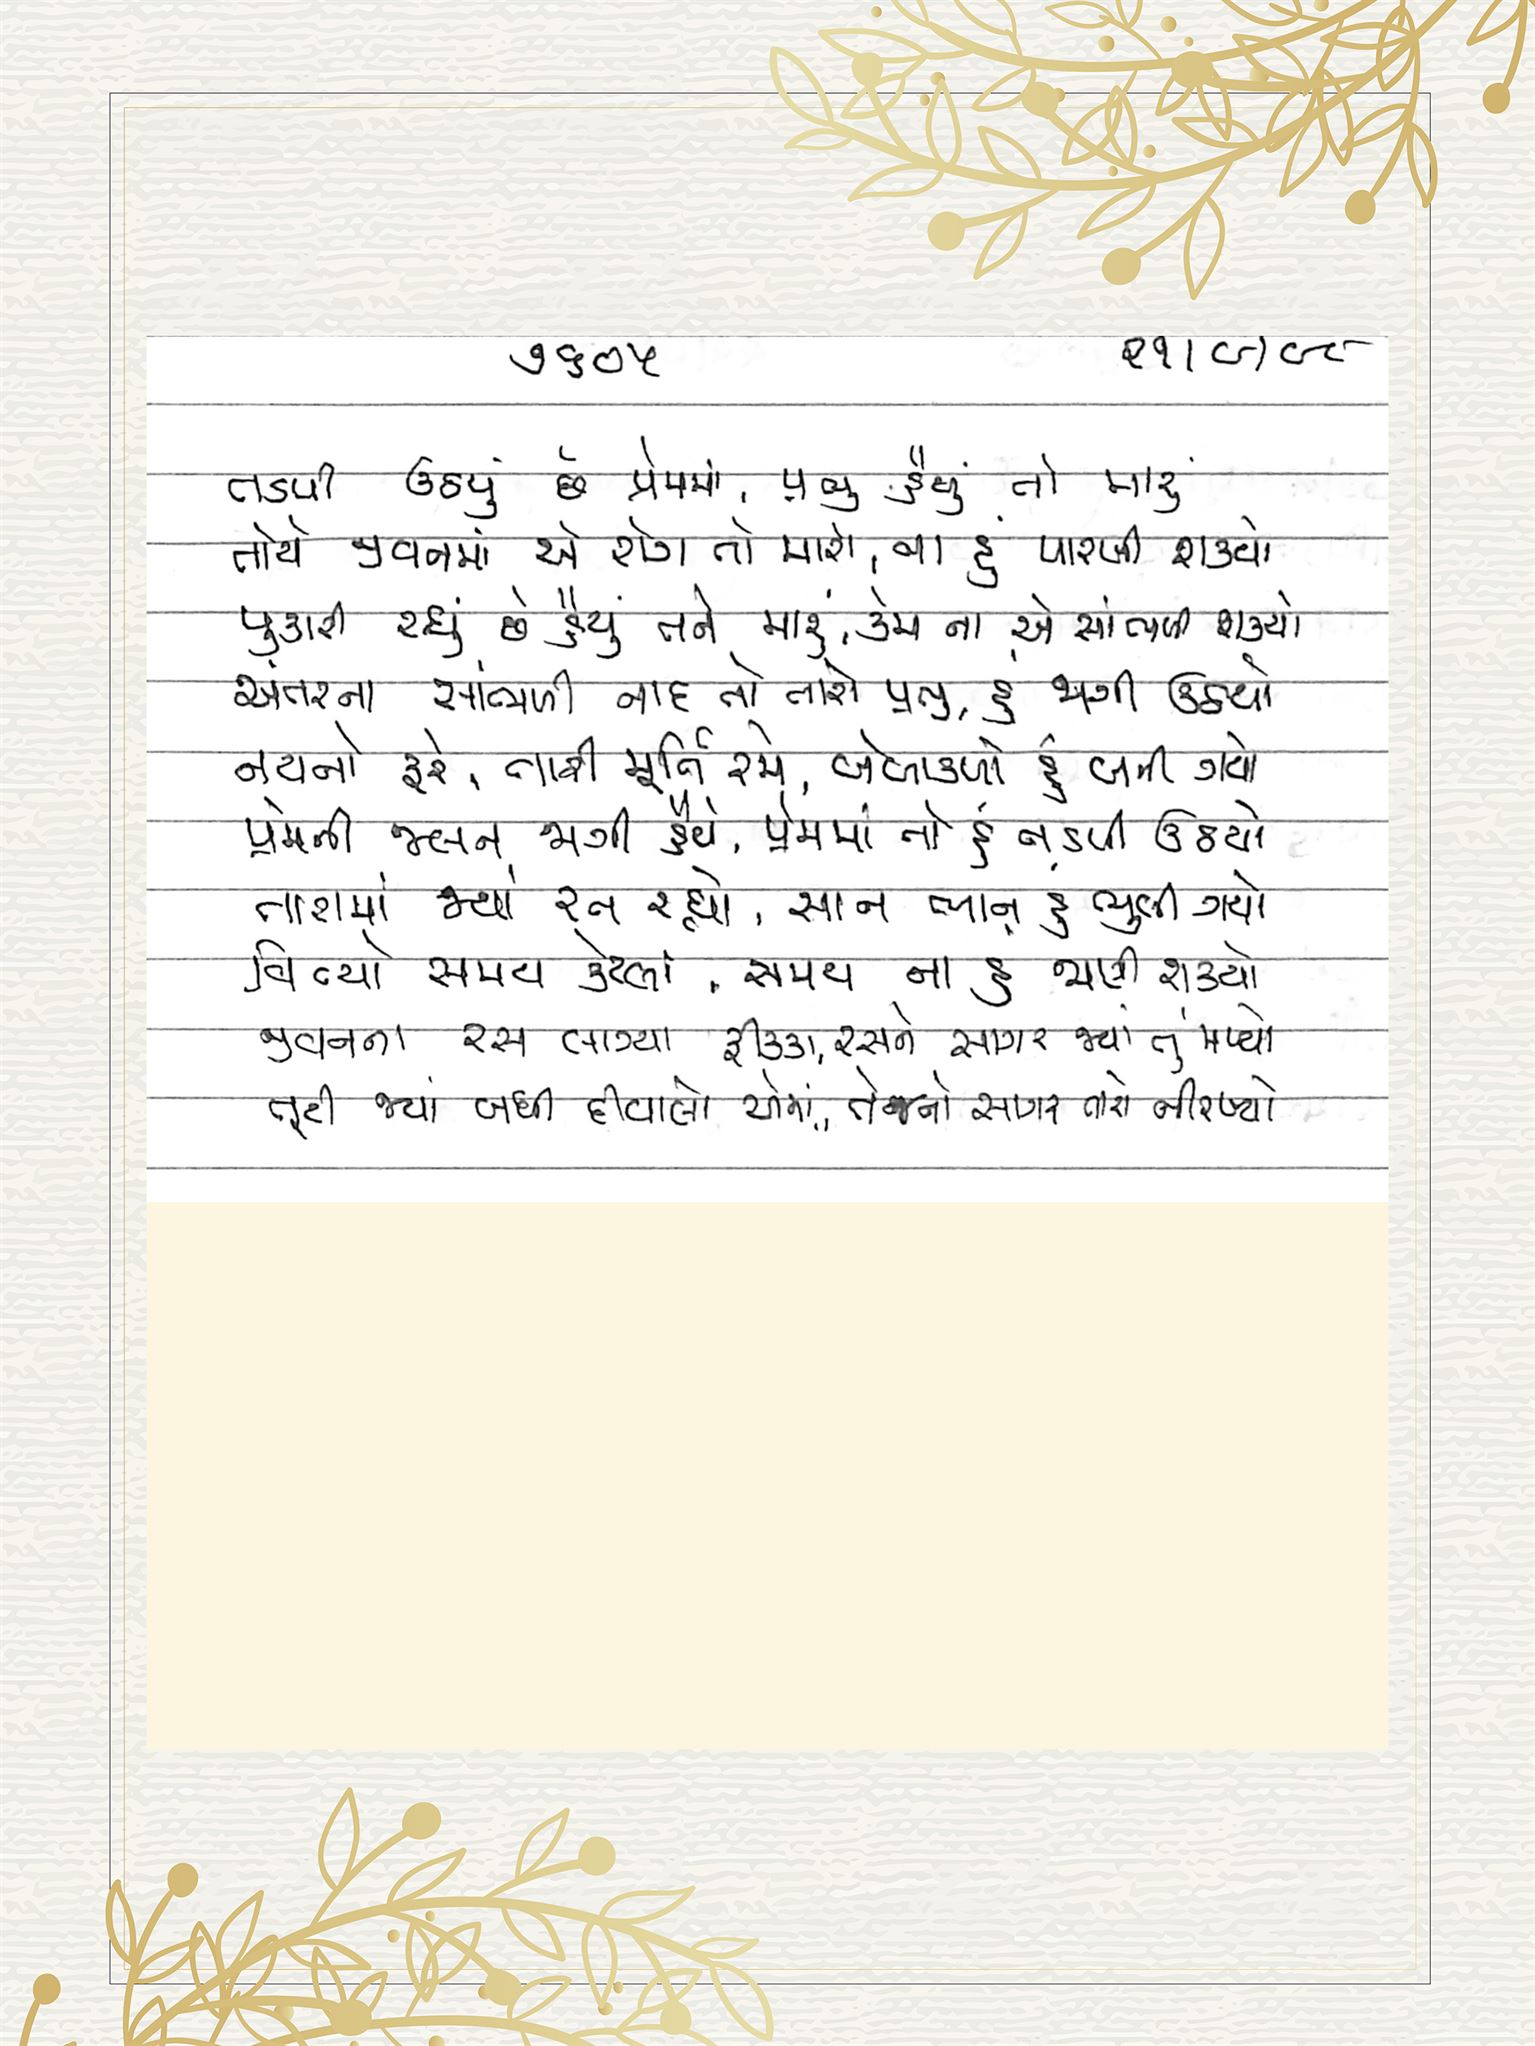 ૭૬૦૫ ૨૧/૯/૯૮
તડપી ઉઠયું છે પ્રેમમાં, પ્રભુ હૈયું તો મારું
તોયે જીવનમાં એ રોગ તો મારો, ના હું પારખી શક્યો
પુકારી રહ્યું છે હૈયું તને મારું, કેમ ના એ સાંભળી શક્યો
અંતરના સાંભળી નાદ તો તારો પ્રભુ, હું જાગી ઉઠયો
નયનો ફરે, તારી મૂર્તિ રમે, બેબાકળો હું બની ગયો
પ્રેમની જલન જાગી હૈયે, પ્રેમમાં તો હું તડપી ઉઠયો
તારામાં જ્યાં રત રહ્યો, સાન ભાન હું ભુલી ગયો
વિત્યો સમય કેટલો, સમય ના હું જાણી શક્યો
જીવનના રસ લાગ્યા ફીક્કા, રસને સાગર જ્યાં તું મળ્યો
તૂટી જ્યાં બધી દીવાલો તેજનો સાગર તારો નીરખ્યો